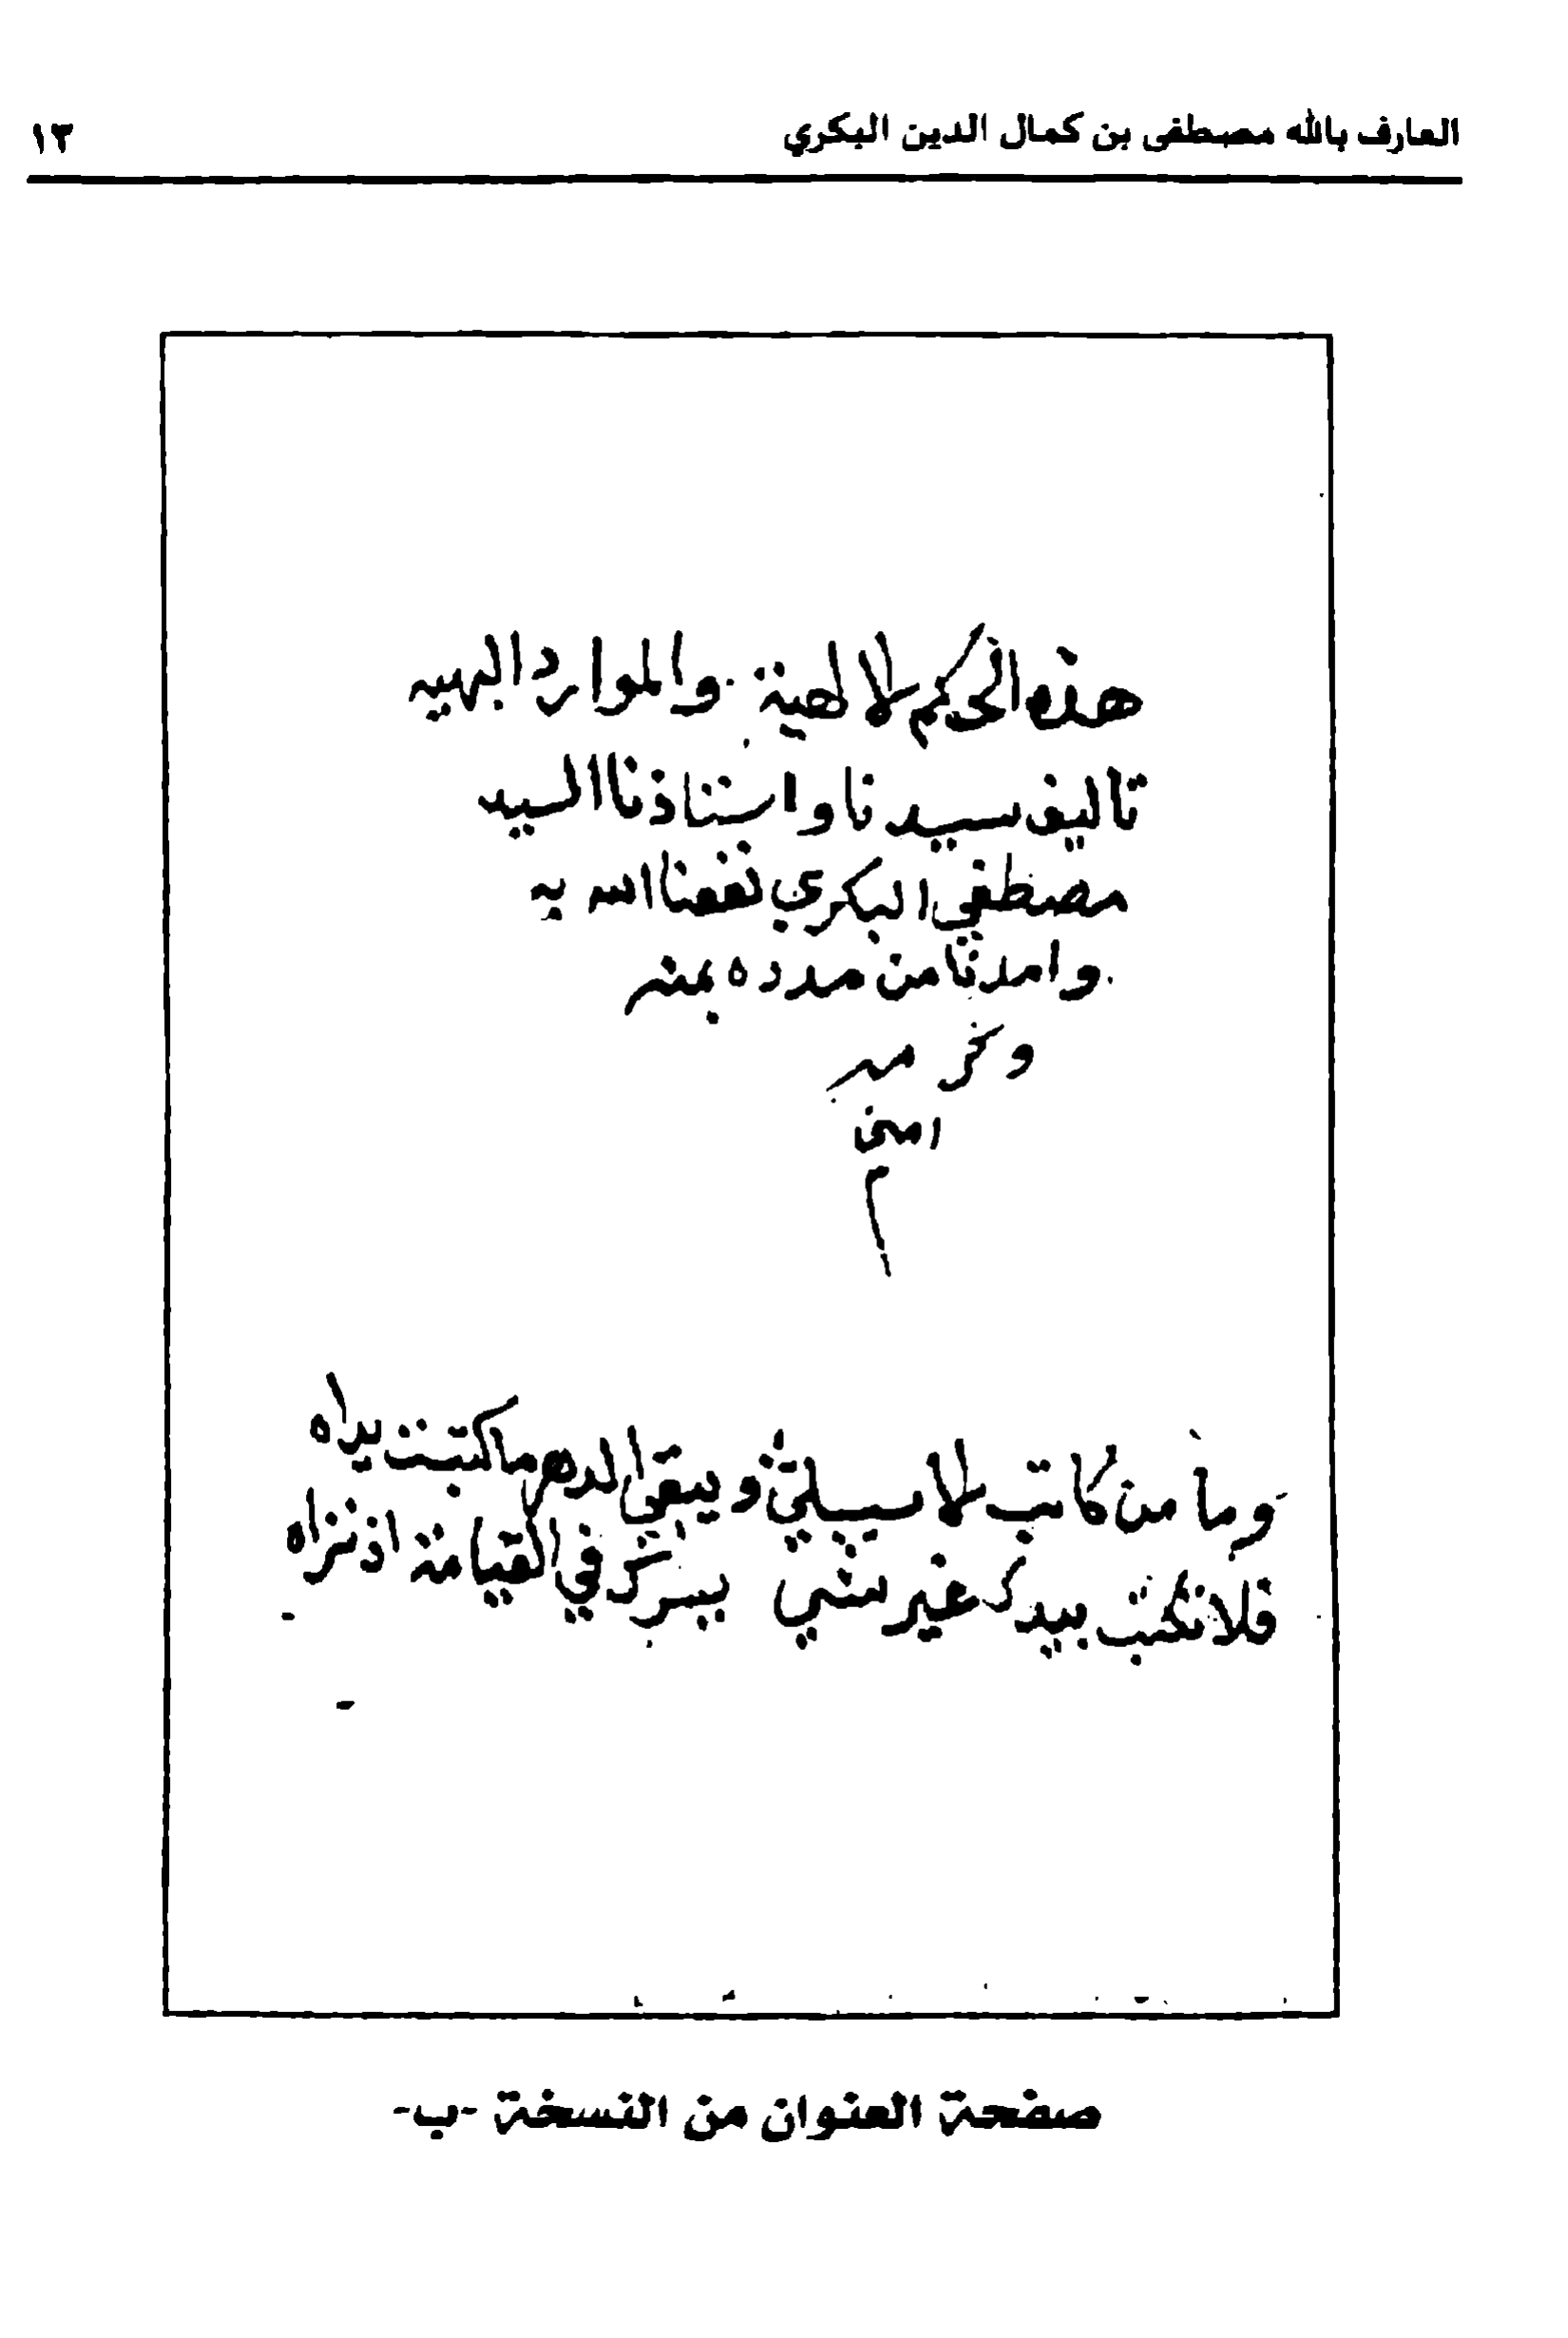 العارف بالله مصطفى بن كمال الدين البكري ١٣
هذه الحكم الالهية والموارد البهيه
تاليف سيدنا واستاذنا السيد
مصطفى البكري نفعنا الله به
وامدنا من مدده بمنه
وكرمه
امين
م
وما من كاتب الا سيبلى ويبقى الدهر ما كتبت يداه
فلا تكتب بيدك غير شي يسرك في القيامة اذ تراه
صفحة العنوان من النسخة -ب-